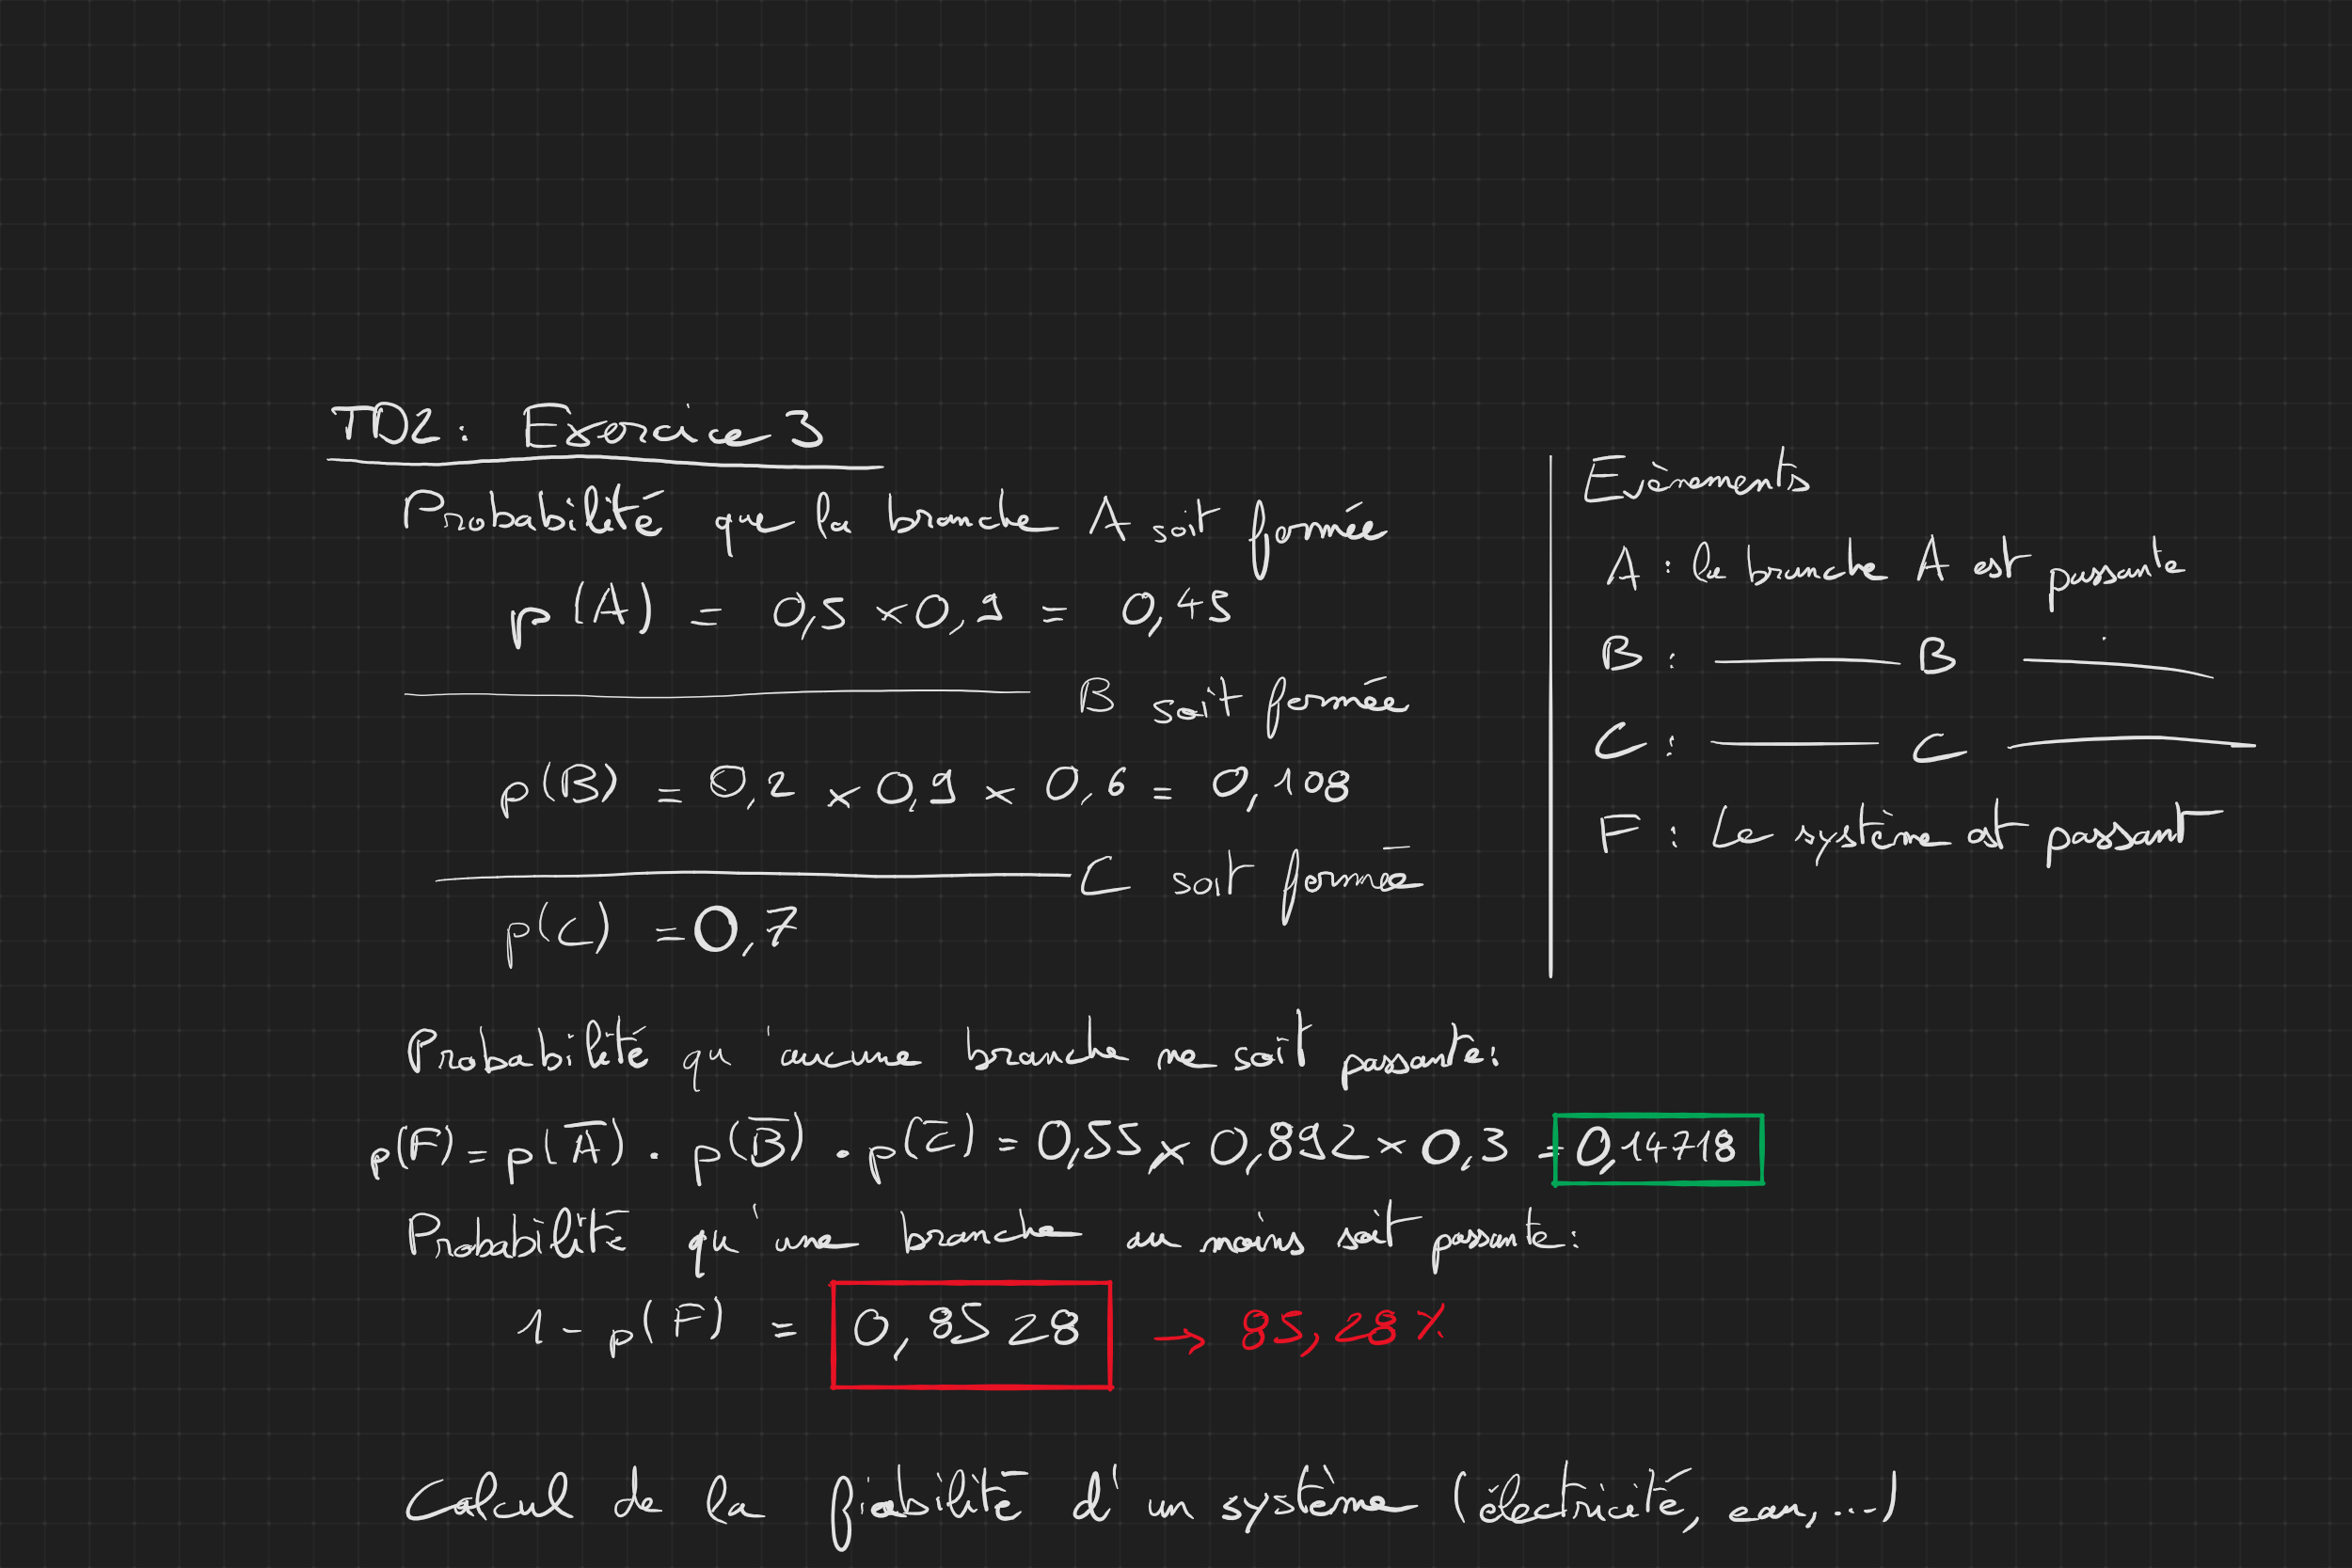 TD2: Exercice 3
Probabilité que la branche A soit formée
p(A) = 0,5 × 0,9 = 0,45
B soit formée
p(B) = 0,2 × 0,9 × 0,6 = 0,108
C soit formée
p(C) = 0,7
Evènements
A : la branche A est passante
B : B
C : C
F : Le système est passant
Probabilité qu'aucune branche ne soit passante:
p(F̅) = p(A̅) . p(B̅) . p(C̅) = 0,55 × 0,892 × 0,3 = 0,14718
Probabilité qu'une branche au moins soit passante:
1 - p(F̅) = 0,8528 → 85,28 %
Calcul de la fiabilité d'un système (électricité, eau, ...)